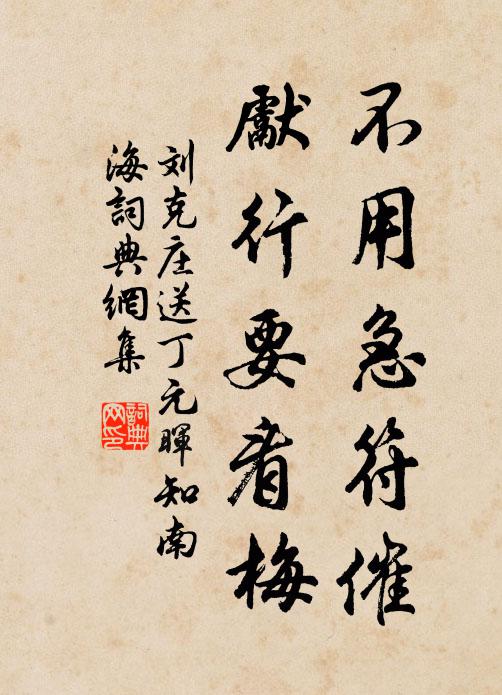 不用急符催
獻行要看梅
刘克庄送丁元暉知南
海詞典網集
詞典
网印